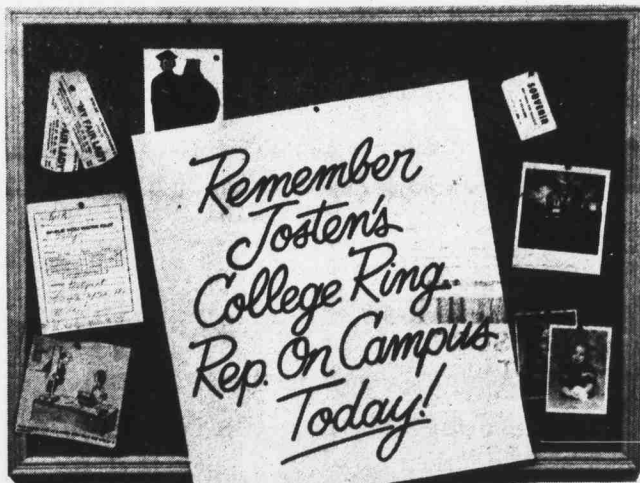 "MY FAIR LADY"
FAIR LADY
SOUVENIR
Remember
Josten's
College Ring
Rep. On Campus
Today!